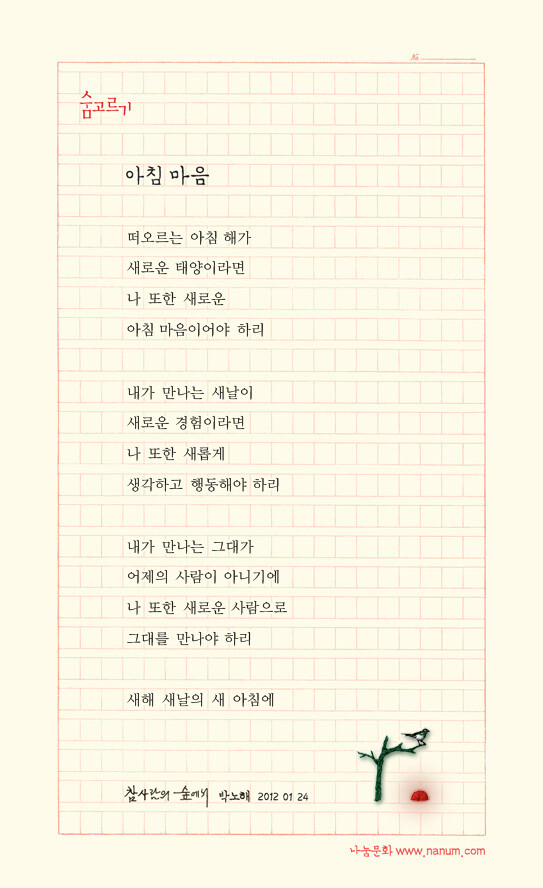 №
숨고르기
아침 마음
떠오르는 아침 해가
새로운 태양이라면
나 또한 새로운
아침 마음이어야 하리
내가 만나는 새날이
새로운 경험이라면
나 또한 새롭게
생각하고 행동해야 하리
내가 만나는 그대가
어제의 사람이 아니기에
나 또한 새로운 사람으로
그대를 만나야 하리
새해 새날의 새 아침에
참사람의 숲에서 박노해 2012 01 24
나눔문화 www.nanum.com